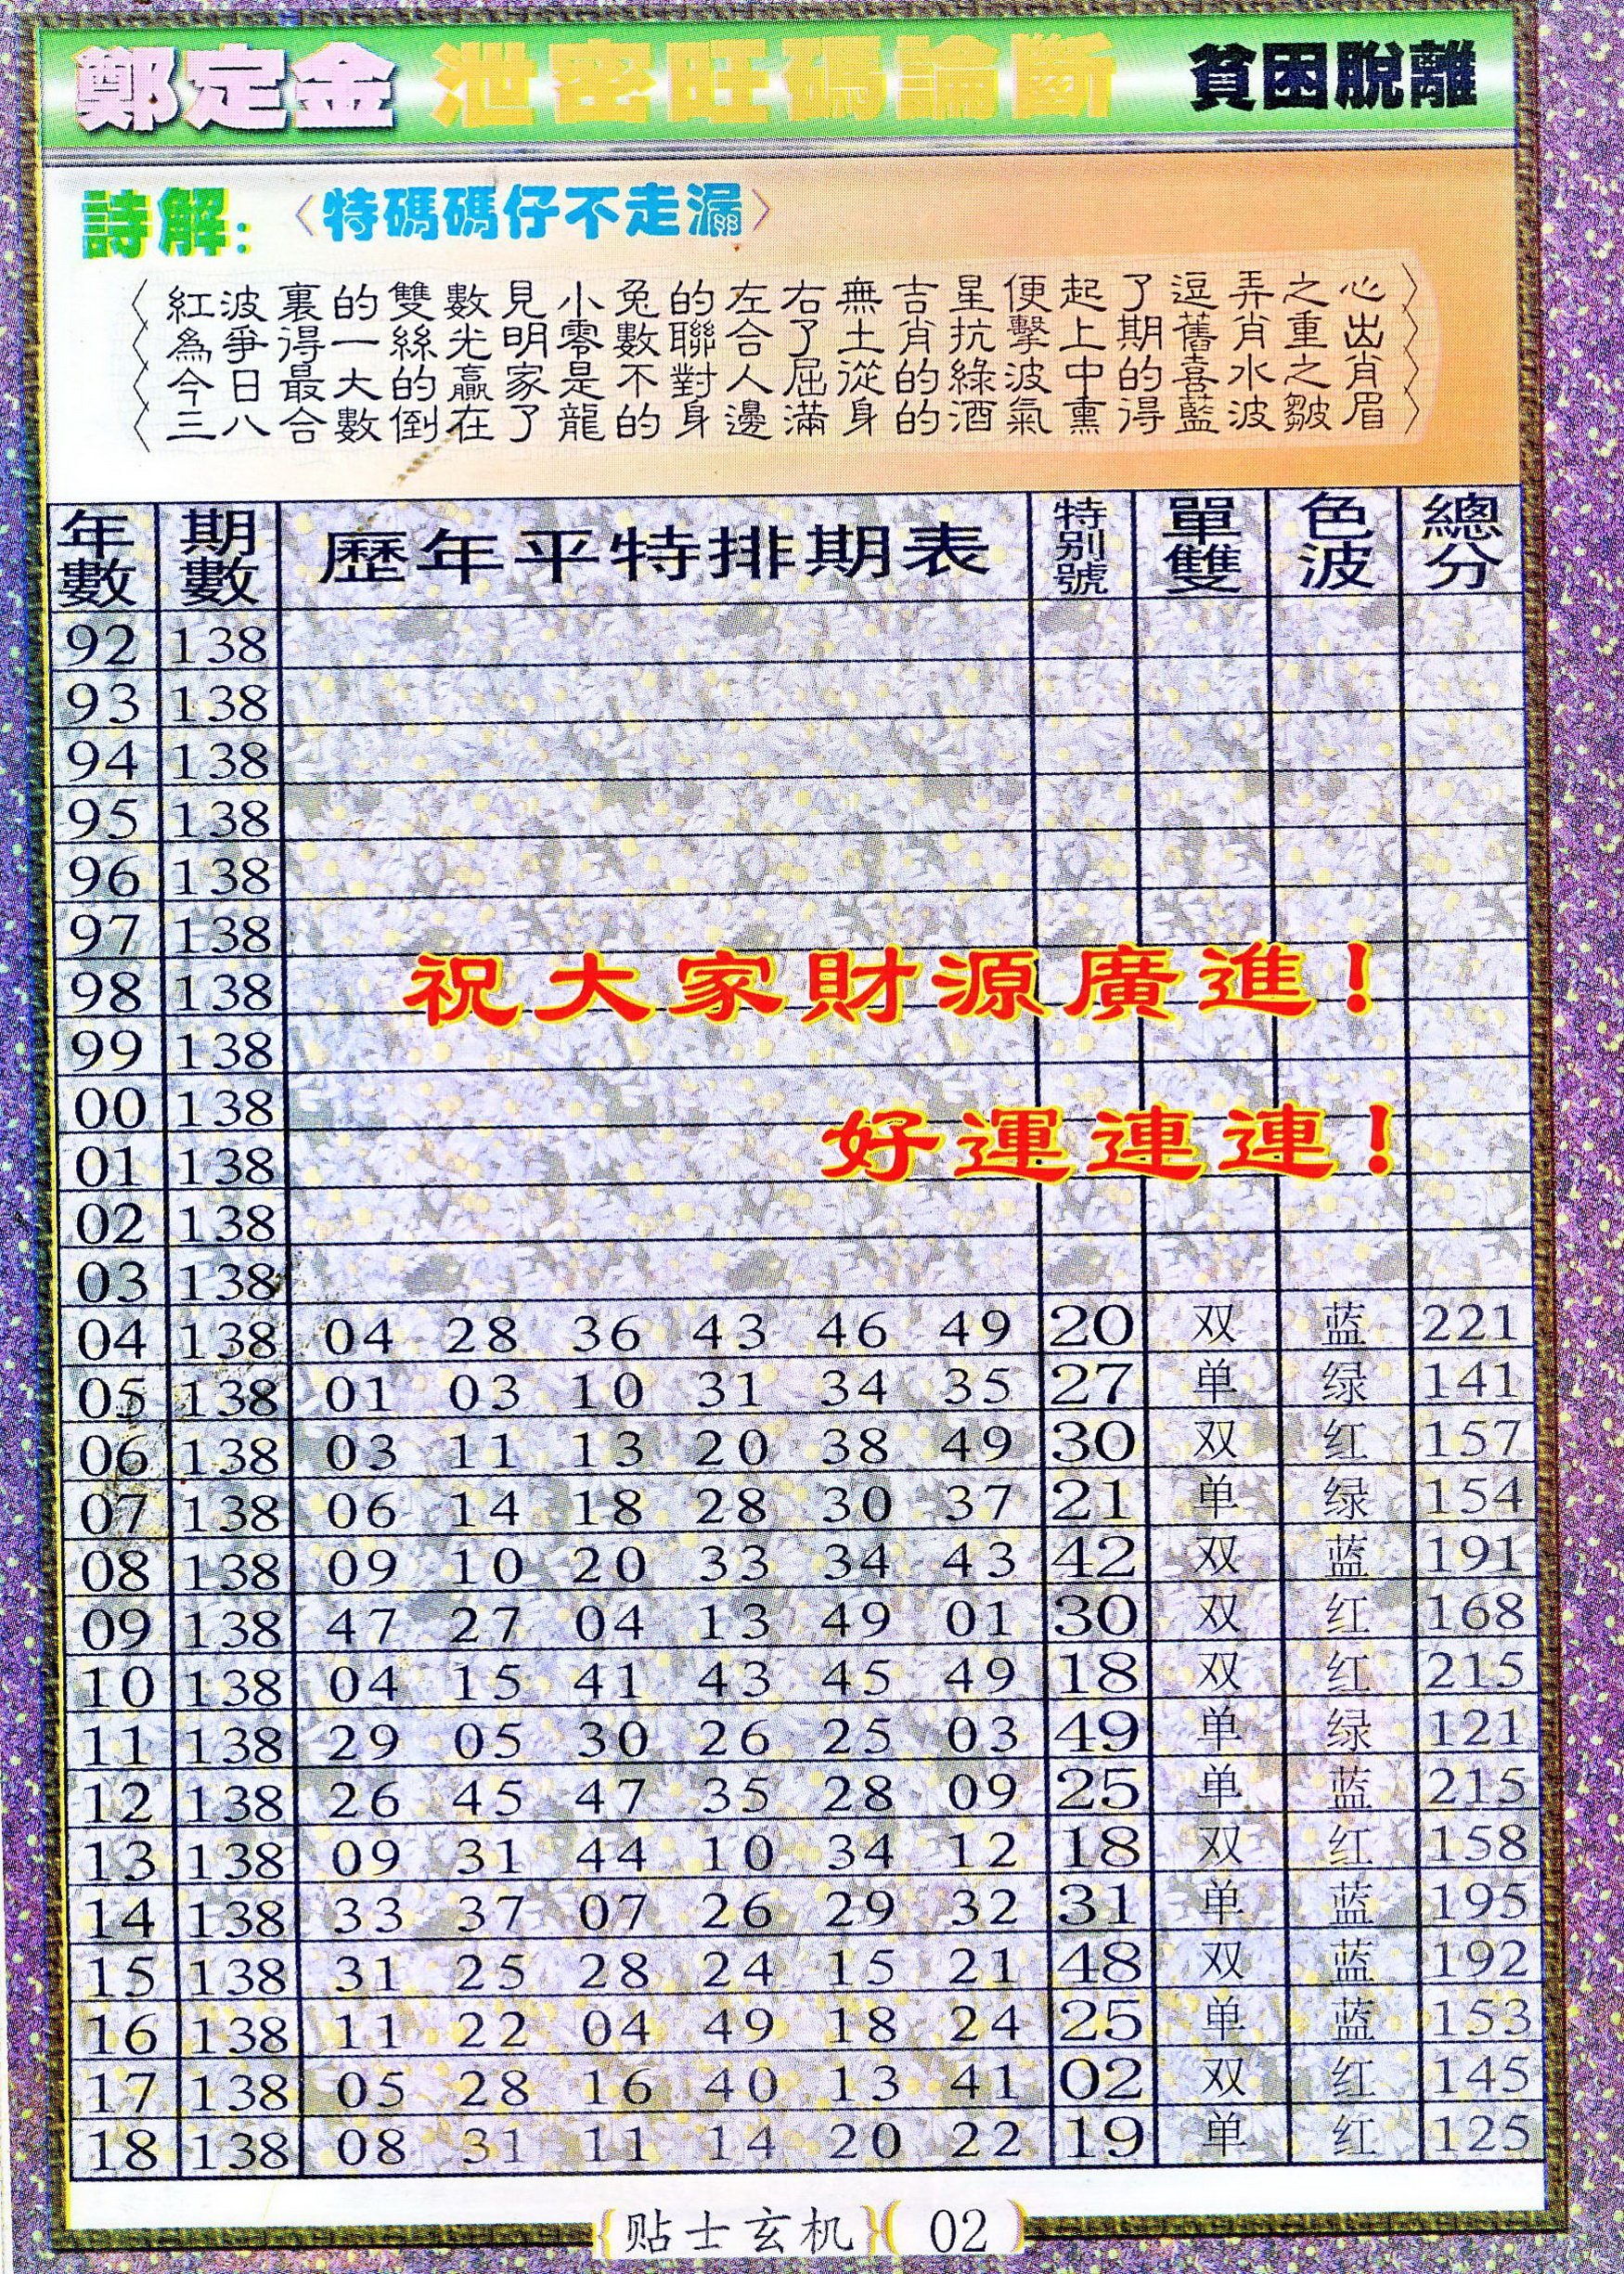 鄭定金 泄密旺碼論斷 貧困脫離
詩解:〈特碼碼仔不走漏〉
〈紅波裏的雙數見小兔的左右無吉星便起了逗弄之心〉
〈為爭得一絲光明零數聯合了土肖抗擊上期舊肖重出〉
〈今日最大的贏家是不對人屈從的綠波中的喜水之肖〉
〈三八合數倒在了龍的身邊滿身的酒氣熏得藍波皺眉〉
年數 期數 歷年平特排期表 特別號 單雙 色波 總分
92 138
93 138
94 138
95 138
96 138
97 138
祝大家財源廣進！
98 138
99 138
00 138
好運連連！
01 138
02 138
03 138
04 138 04 28 36 43 46 49 20 双 蓝 221
05 138 01 03 10 31 34 35 27 单 绿 141
06 138 03 11 13 20 38 49 30 双 红 157
07 138 06 14 18 28 30 37 21 单 绿 154
08 138 09 10 20 33 34 43 42 双 蓝 191
09 138 47 27 04 13 49 01 30 双 红 168
10 138 04 15 41 43 45 49 18 双 红 215
11 138 29 05 30 26 25 03 49 单 绿 121
12 138 26 45 47 35 28 09 25 单 蓝 215
13 138 09 31 44 10 34 12 18 双 红 158
14 138 33 37 07 26 29 32 31 单 蓝 195
15 138 31 25 28 24 15 21 48 双 蓝 192
16 138 11 22 04 49 18 24 25 单 蓝 153
17 138 05 28 16 40 13 41 02 双 红 145
18 138 08 31 11 14 20 22 19 单 红 125
{贴士玄机}(02)